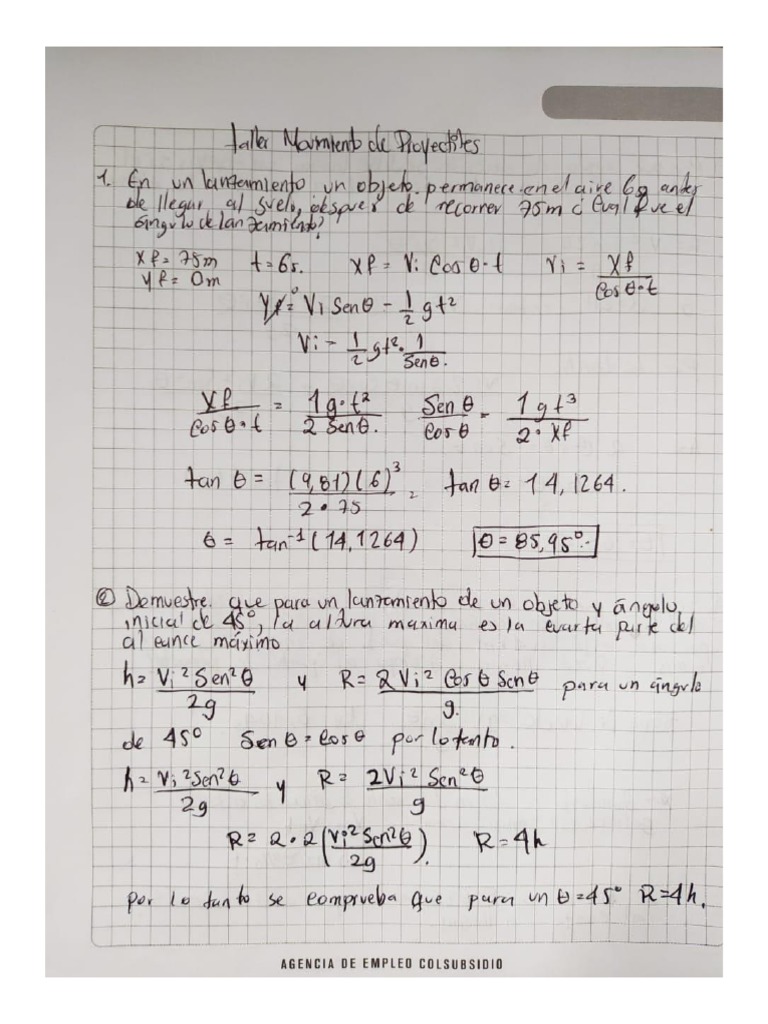 Taller Movimiento de Proyectiles
1. En un lanzamiento un objeto permanece en el aire 6s antes
de llegar al suelo, después de recorrer 75m ¿ Cual fue el
ángulo de lanzamiento?
Xf = 75m t = 6s. Xf = Vi Cos θ · t Vi = Xf / Cos θ · t
Yf = 0m
Yf = 0 Vi Sen θ - 1/2 g t²
Vi = 1/2 g t² · 1/Sen θ.
Xf / Cos θ · t = 1 g · t² / 2 Sen θ. Sen θ / Cos θ = 1 g t³ / 2 · Xf
tan θ = (9,81)(6)³ / 2 · 75 = tan θ = 14,1264.
θ = tan⁻¹ (14,1264) θ = 85,95°
② Demuestre que para un lanzamiento de un objeto y ángulo
inicial de 45°, la altura maxima es la cuarta parte del
alcance máximo
h = Vi² Sen² θ / 2g y R = 2 Vi² Cos θ Sen θ / g. para un ángulo
de 45° Sen θ = Cos θ por lo tanto.
h = Vi² Sen² θ / 2g y R = 2 Vi² Sen² θ / g
R = 2 · 2 (Vi² Sen² θ / 2g). R = 4h
por lo tanto se comprueba que para un θ = 45° R = 4h.
AGENCIA DE EMPLEO COLSUBSIDIO